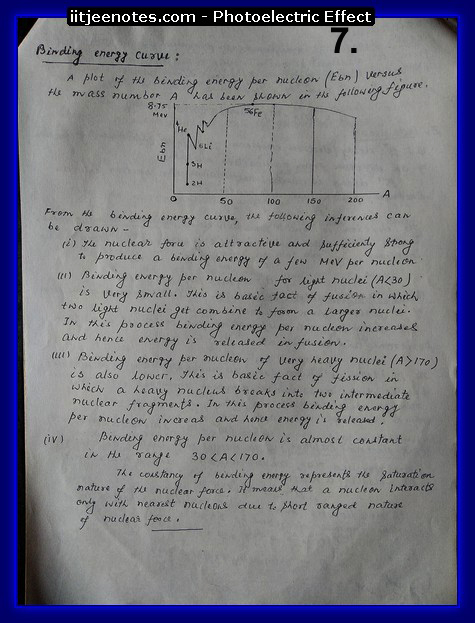 iitjeenotes.com - Photoelectric Effect
7.
Binding energy curve :
A plot of the binding energy per nucleon (Ebn) versus
the mass number A has been shown in the following figure.
8.75
MeV
56Fe
4He
6Li
Ebn
3H
2H
0 50 100 150 200 A
From the binding energy curve, the following inferences can
be drawn –
(i) The nuclear force is attractive and sufficiently strong
to produce a binding energy of a few MeV per nucleon
(ii) Binding energy per nucleon for light nuclei (A<30)
is very small. This is basic fact of fusion in which
two light nuclei get combine to form a larger nuclei.
In this process binding energy per nucleon increases
and hence energy is released in fusion.
(iii) Binding energy per nucleon of very heavy nuclei (A>170)
is also lower. This is basic fact of fission in
which a heavy nucleus breaks into two intermediate
nuclear fragments. In this process binding energy
per nucleon increas and hence energy is released.
(iv) Binding energy per nucleon is almost constant
in the range 30<A<170.
The constancy of binding energy represents the saturation
nature of the nuclear force. It means that a nucleon interacts
only with nearest nucleons due to short ranged nature
of nuclear force.